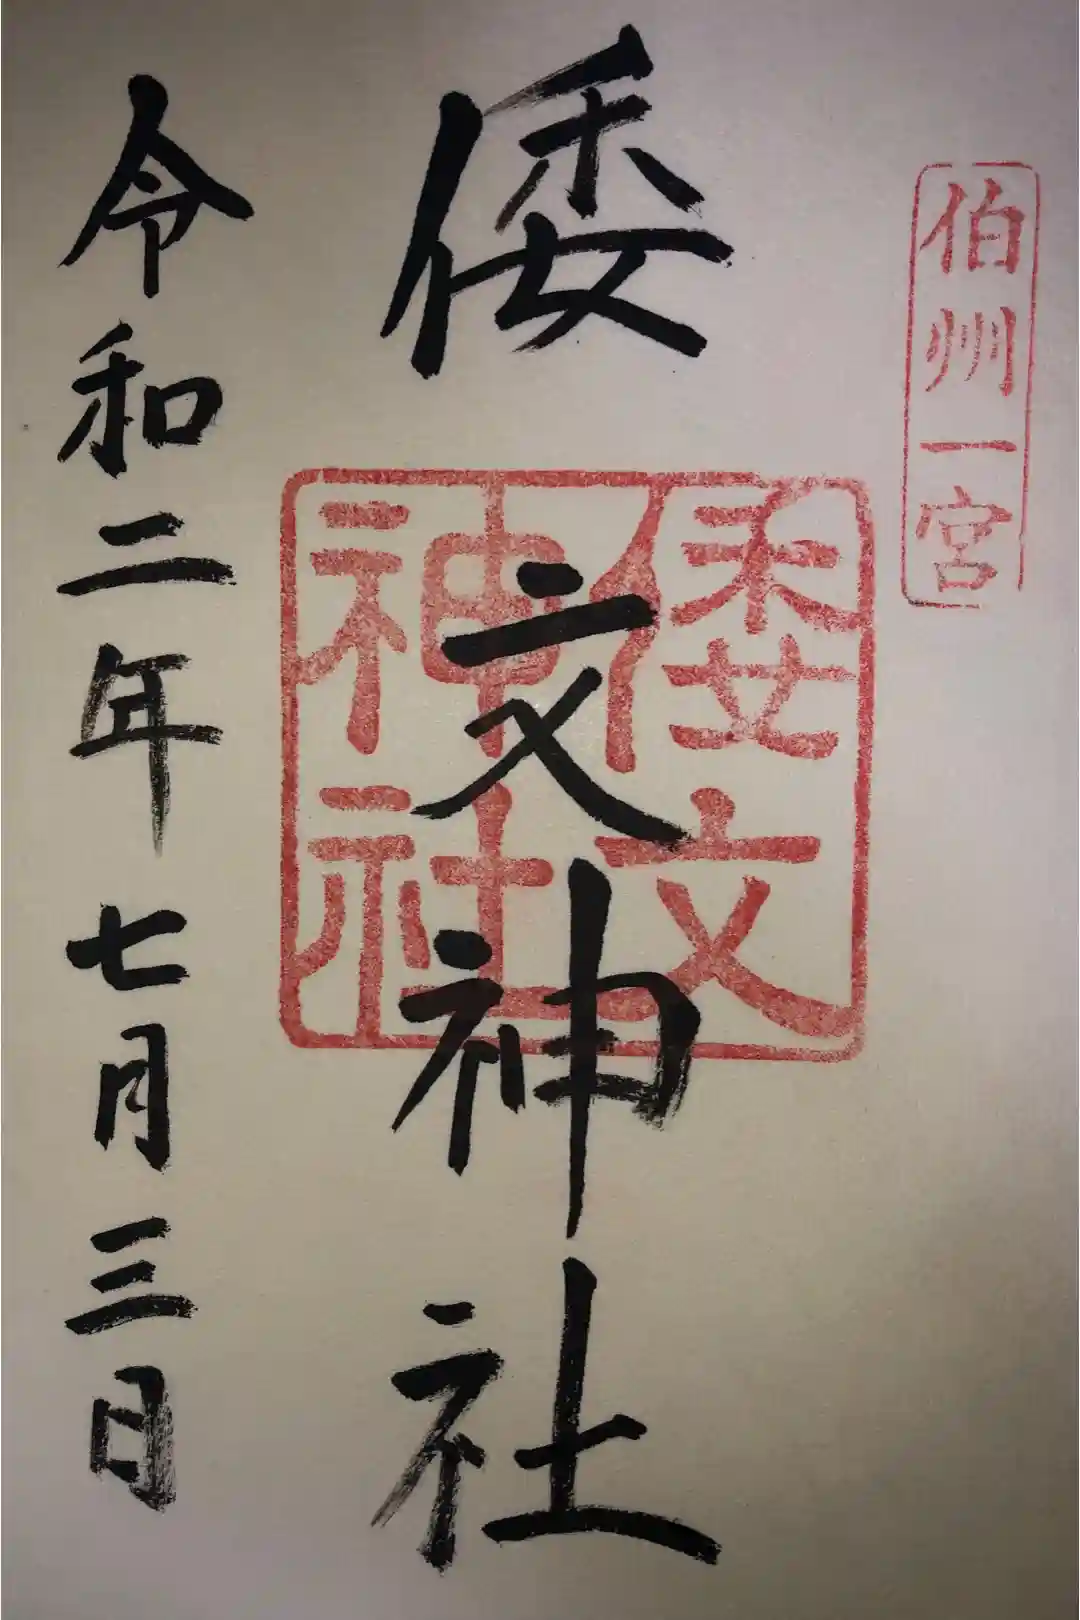 伯州一宮
倭文神社
倭文
神社
令和二年 七月三日